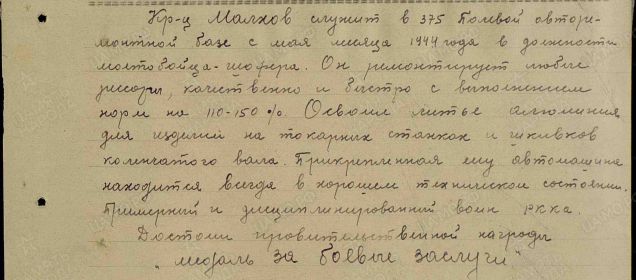 Кр-ц Малхов служит в 375 Полевой авторе-
монтной базе с мая месяца 1944 года в должности
молотобойца-шофера. Он ремонтирует любые
рессоры, качественно и быстро с выполнением
норм на 110-150%. Освоил литье алюминия
для изделий на токарных станках и шкивков
коленчатого вала. Прикрепленная ему автомашина
находится всегда в хорошем техническом состоянии.
Примерный и дисциплинированный воин РККА.
Достоин правительственной награды
"медаль за боевые заслуги"